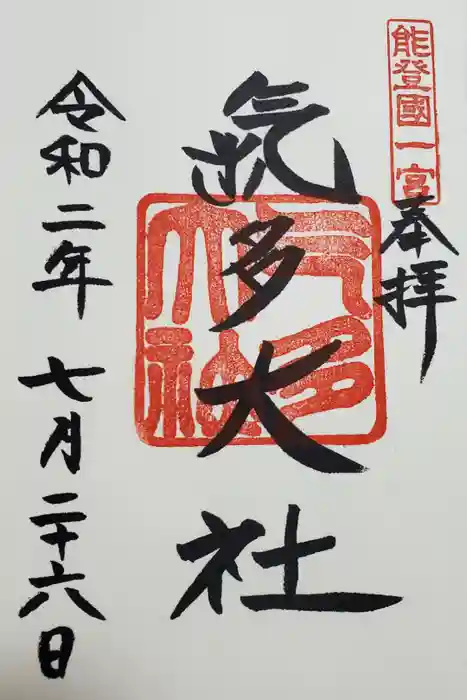 能登國一宮
奉拝
氣多大社
気多
大社
令和二年 七月二十六日